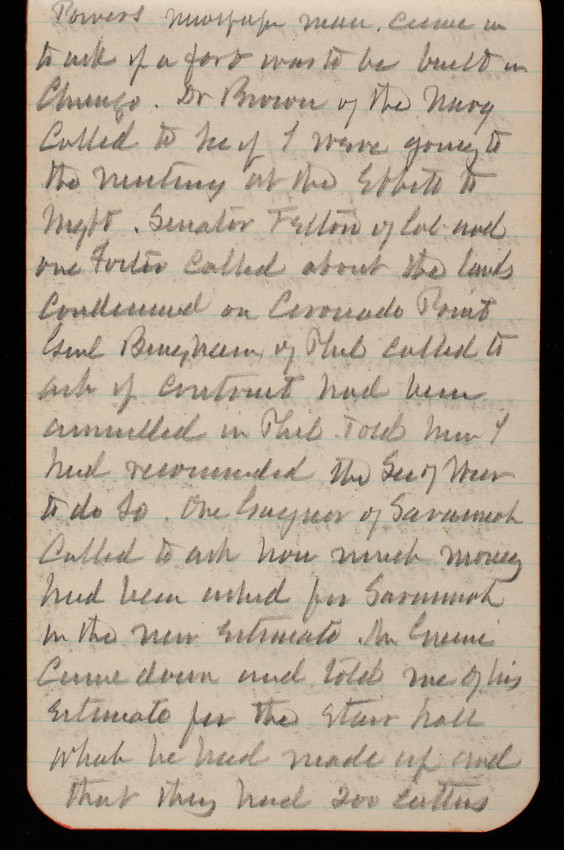 Powers newspaper man. Came in
to ask if a fort was to be built in
Chicago. Dr Brown of the Navy
Called to see if I were going to
the meeting at the Ebbitt to
night. Senator Felton of Cal and
one Foster called about the lands
Condemned on Coronado Point
Genl Bingham, of Phil called to
ask if contract had been
annulled in Phil. Told him I
had recommended the Sec of War
to do so. One Gaynor of Savannah
Called to ask how much money
had been asked for Savannah
in the new Estimate. Mr
Came down and told me of his
Estimate for the Stair hall
what he had made up and
that they had 200 letters